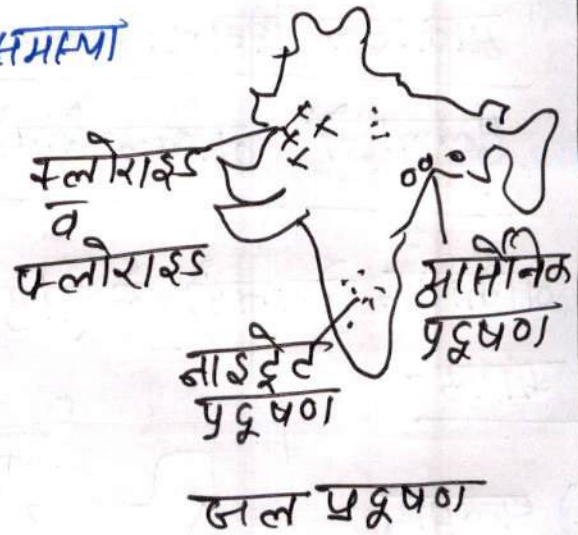 समस्या
क्लोराइड
व
फ्लोराइड
आर्सेनिक
प्रदूषण
नाइट्रेट
प्रदूषण
जल प्रदूषण